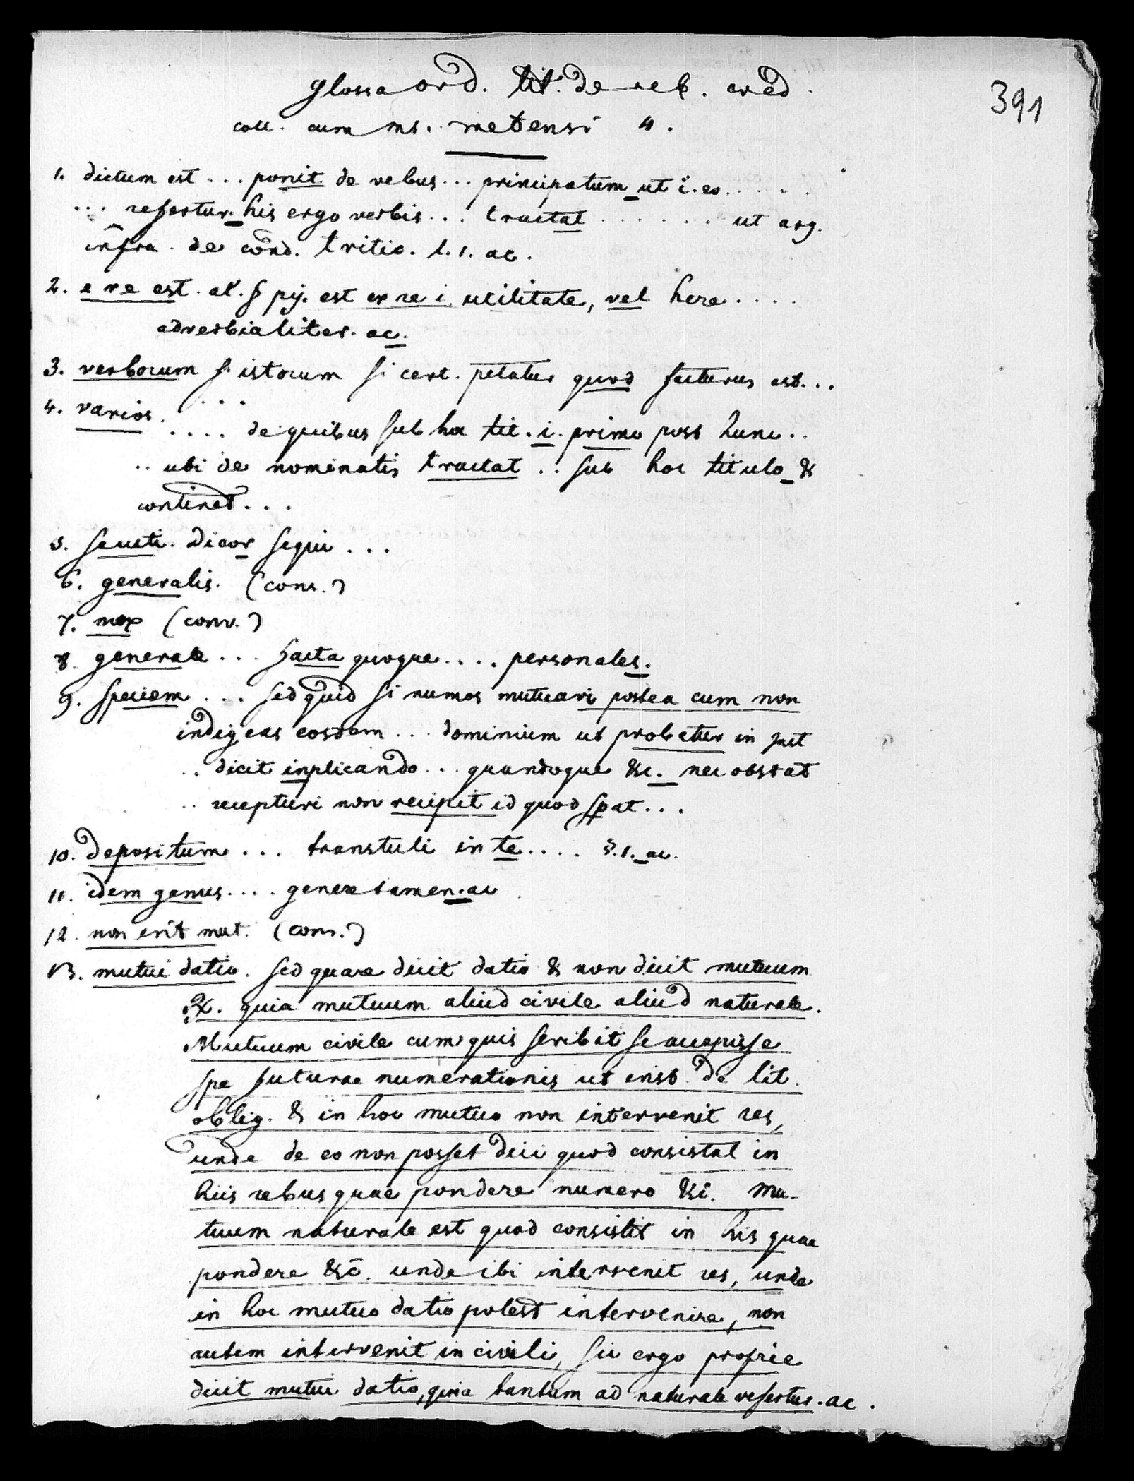 glossa ord. tit. de reb. cred.
391
coll. cum ms. metensi 4.
1. dictum est ... ponit de rebus ... principatum ut i. eo .....
... refertur. his ergo verbis ... tractat ....... ut arg.
infra. de cond. tritic. l. 1. ac.
2. e re est. al. est ex re i utilitate, vel here ....
adverbialiter. ac.
3. verborum si istorum si cert. petatur quod facturus est...
4. varios. ...
.... de quibus sub hoc tit. i. primo post hunc ..
.. ubi de nominatis tractat .. sub hoc titulo &
continet ...
5. secuti. dicor sequi ...
6. generalis. (cons.)
7. mox (conv.)
8. generale ... facta quoque .... personales.
9. speciem ... sed quid si numos mutuari postea cum non
indigeas eosdem ... dominium ut probetur in
.. dicit inplicando .. quandoque &c. nec obstat
.. recepturi non recipit id quod spat ...
10. depositum ... transtuli in te .... 3. 1. ac.
11. idem genus .... genere tamen. ac
12. non erit mut. (cons.)
13. mutui datio. sed quare dicit datio & non dicit mutuum
quia mutuum aliud civile aliud naturale.
Mutuum civile cum quis scribit se accepisse
spe futurae numerationis ut inst. de lit.
oblig. & in hoc mutuo non intervenit res,
unde de eo non posset dici quod consistat in
hiis rebus quae pondere numero &c. Mu-
tuum naturale est quod consistit in his quae
pondere &c. unde ibi intervenit res, unde
in hoc mutuo datio potest intervenire, non
autem intervenit in civili, sic ergo proprie
dicit mutui datio, quia tantum ad naturale refertur. ac.